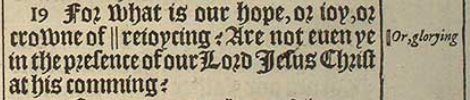 19 For what is our hope, or ioy, or
crowne of ‖ reioycing? Are not euen ye
in the presence of our Lord Jesus Christ
at his comming?
‖Or, glorying